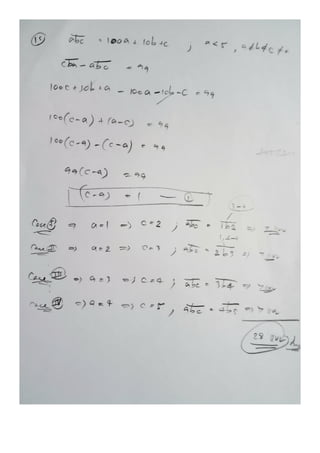 abc = 100a + 10b + c ; a<5 , a≠b≠c≠
cba - abc = 99
100c + 10b + a - 100a - 10b - c = 99
100(c-a) + (a-c) = 99
100(c-a) - (c-a) = 99
99(c-a) = 99
(c-a) = 1 — ①
Case I ⇒ a=1 ⇒ c=2 ; abc = 1b2 ⇒
Case II ⇒ a=2 ⇒ c=3 ; abc = 2b3 ⇒
Case III ⇒ a=3 ⇒ c=4 ; abc = 3b4 ⇒
Case IV ⇒ a=4 ⇒ c=5 , abc = 4b5 ⇒
28